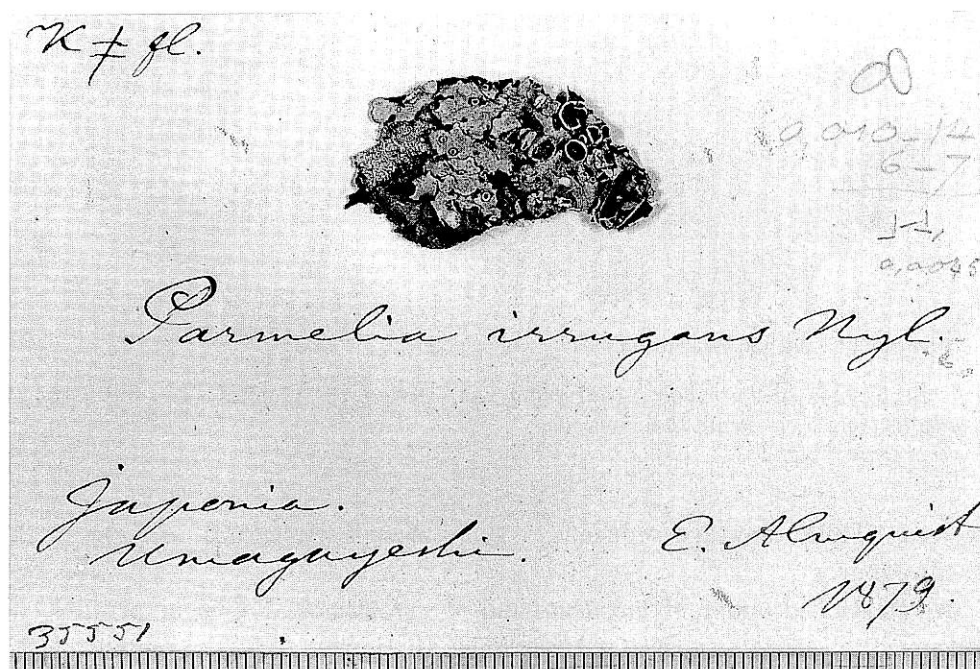 K ≠ fl.
0,010-14
6-7
0,0045
Parmelia irrugans Nyl.
Japonia.
Umagayeshi.
E. Almquist
1879.
35551